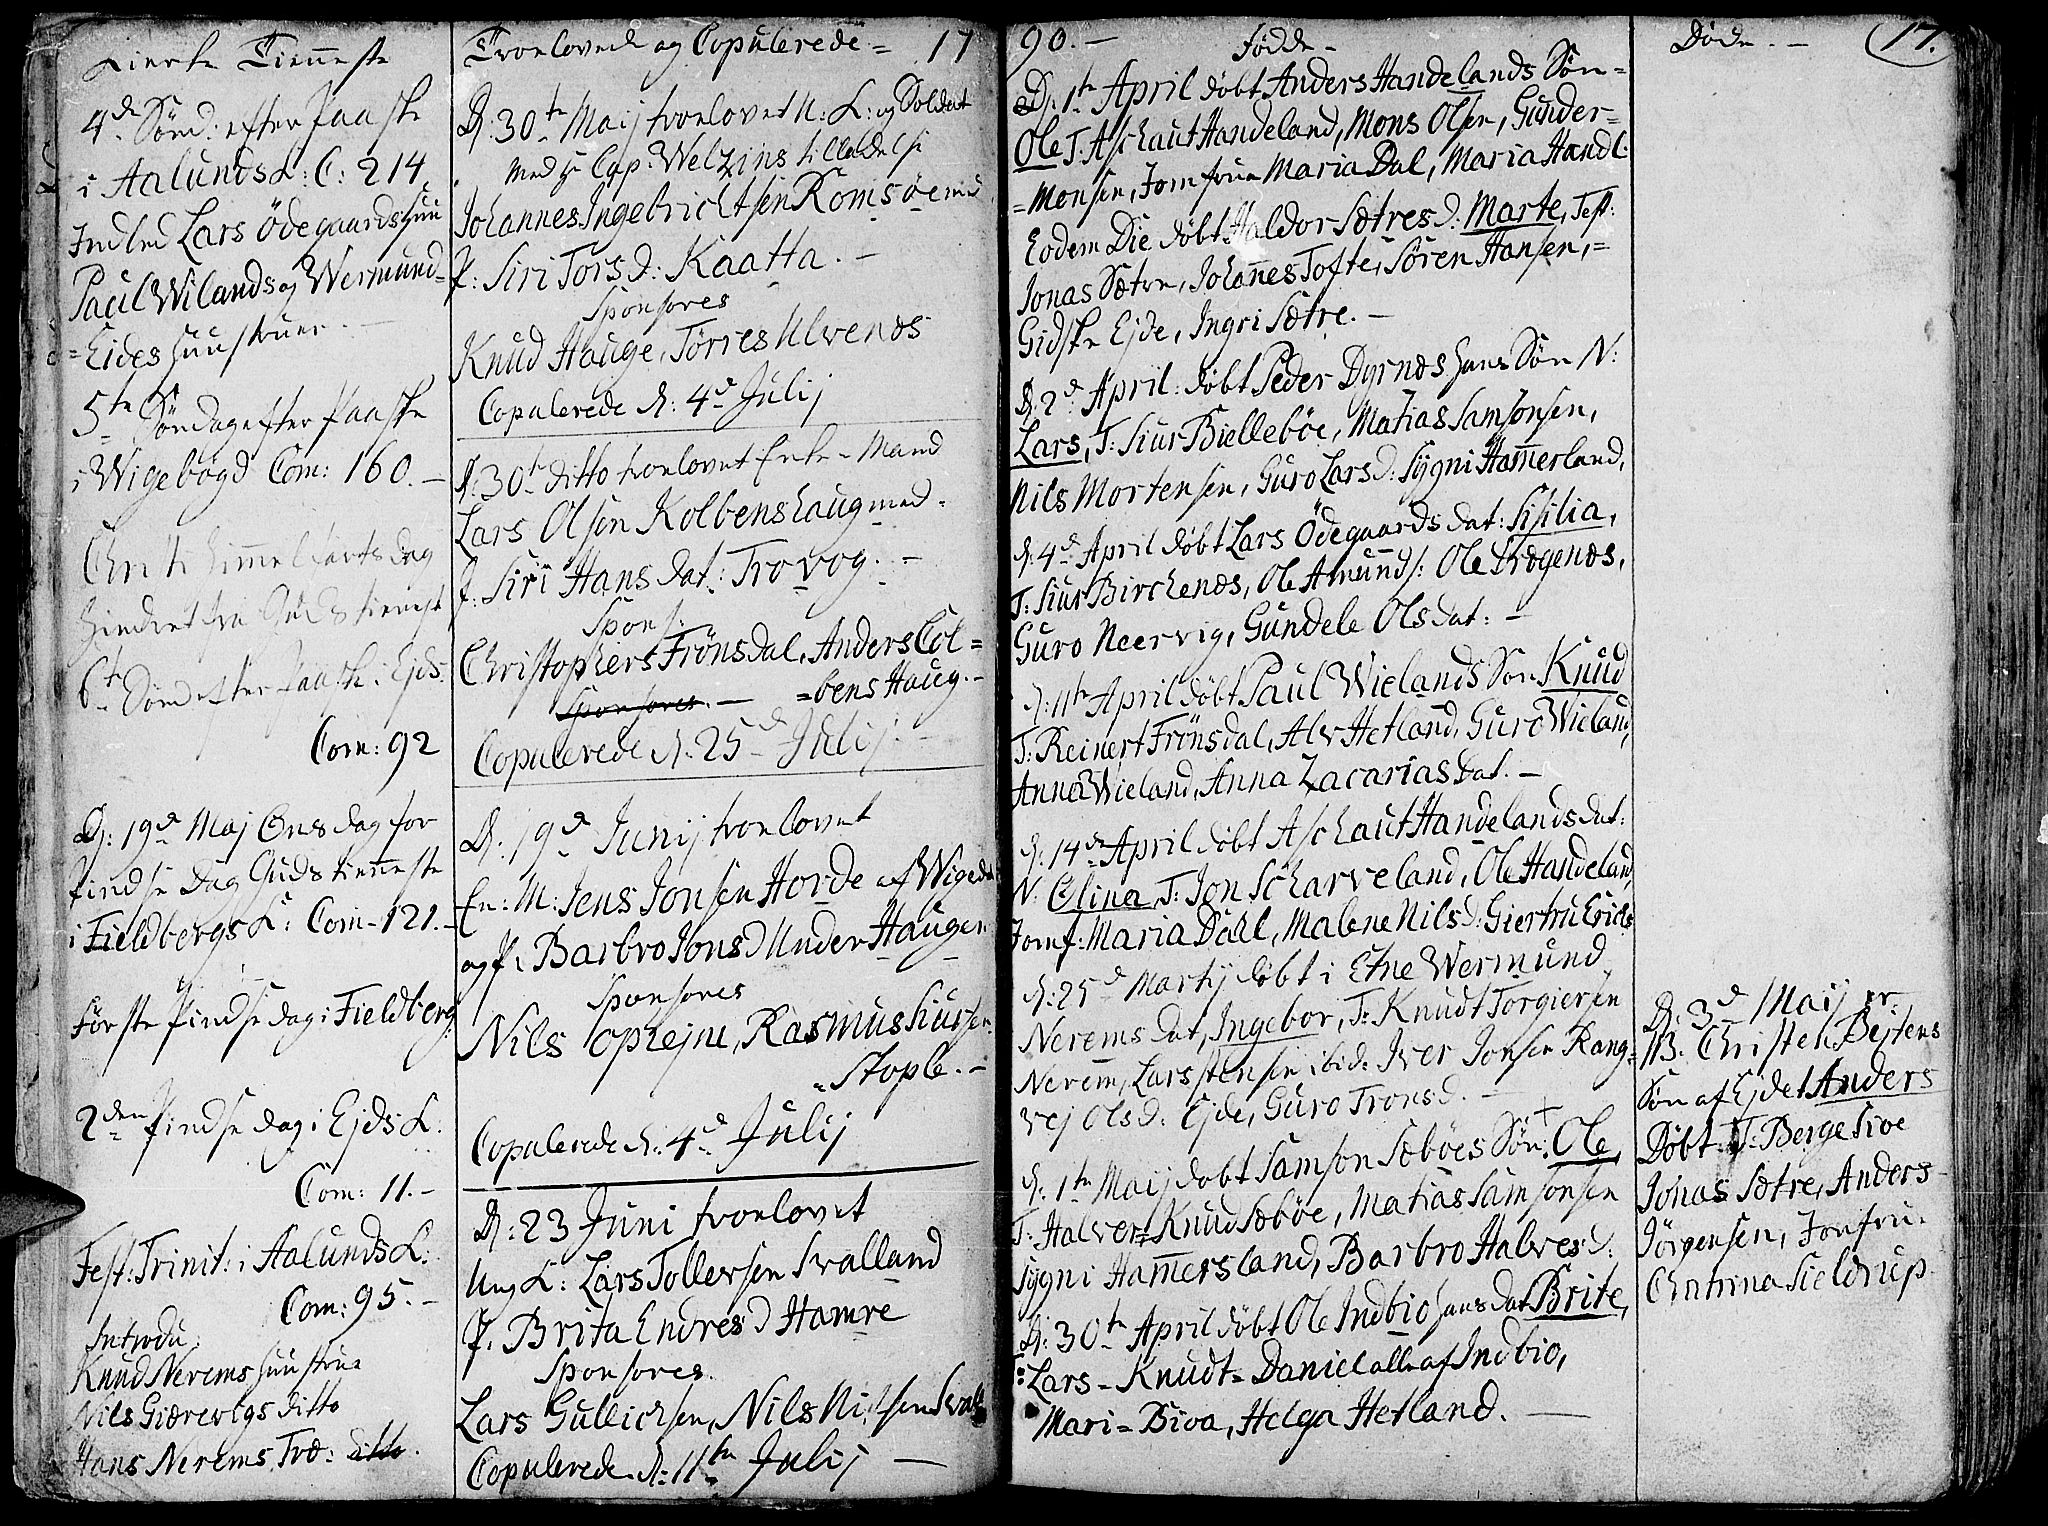 Kierke Tienneste
4de Sönd: efter Paaske
i Aalunds K: C: 214
Indled Lars Ödegaards huu
Paul Wilands og Wermund=
=Eides huustruer. —
5te Söndag efter Paaske
i Wigebögd Com: 160. —
Christi himmelfarts dag
hindret fra Guds tienest
6te Sönd efter Paaske i Ejds:
Com: 92
D: 19de Maj Onsdag for
Pindse Dag Guds tienneste
i Fieldbergs K: Com - 121. -
Förste Pindse dag i Fieldberg:
2den Pindse dag i Ejds K:
Com: 11. -
Fest: Trinit: i Aalunds K:
Com: 95. -
Introdu:
Knud Nerems huustrue
Nils Giærevigs ditto
Hans Nerems Træ: ditto.
Troelovede og Copulerede = 17
D: 30te Maij troelovet U: K: og Soldat
med Hr Cap: Welzins tilladelse
Johannes Ingebrichtsen Romsöe med
P: Siri Tors d: Kaatta. -
Sponsores
Knud Hauge, Törres Ulvenæs
Copulerede d: 4de Julij
D: 30te ditto troelovet Enke-Mand
Lars Olsen Kolbenshaug med
P: Siri Hans dat: Trovog. -
Spons:
Christophers Frönsdal, Anders Col=
Sponsores. — =bens Haug. -
Copulerede d: 25de Julij. -
D: 19de Junij troelovet
En: M: Jens Jonsen Horde af Wigedal
og P: Barbro Jons d Under Haugen
Sponsores
Nils Ophejne, Rasmus Siursen
=Stople. -
Copulerede d: 4de Julij
D: 23 Juni troelovet
Ung K: Lars Tollevsen Svalland
P: Brita Endres d Hamre
Sponsores.
Lars Gullichsen, Nils Nilsen Sval
Copulerede d: 11te Julij —
90. - Födde - Döde. - 17.
D: 1te April döbt Anders Handelands Sön=
Ole T: Aschaut Handeland, Mons Olsen, Gunder=
=Monsen, Jomfrue Maria Dal, Maria Handl:
Eodem Die döbt Haldor Sætres d: Marte, Test:
Jonas Sætre, Johannes Tofte, Sören Hansen,=
Gidske Ejde, Ingri Sætre. -
D: 2de April: döbt Peder Dyrnæs hans Sön N:
Lars, T: Siur Bielleböe, Matias Samsonsen,
Nils Mortensen, Guro Lars d: Sygni Hammerland,
d: 4de April döbt Lars Ödegaards dat: Sisilia,
T: Siur Birchenæs, Ole Amunds: Ole Trægenæs,
Guro Neervig, Gundele Ols dat: -
d: 11te April döbt Paul Wielands Sön Knud
T: Reinert Frönsdal, Alv Hetland, Guro Wieland,
Anna Wieland, Anna Zacarias dat. —
d: 14de April döbt Aschaut Handelands dat:
N: Olina, T: Jon Scharveland, Ole Handeland,
Jomf: Maria Dahl, Malene Nils d: Giertru Erichs
d: 25de Martij döbt i Etne Wermund
Nerems dat, Ingebor, T: Knudt Torgiersen
Nerem, Lars Stensen ibid: Iver Jonsen Rang=
vej Ols d: Ejde, Guro Trons d. -
d: 1te Maij döbt Samson Sæböes Sön: Ole,
T: Halver= Knud Sæböe, Matias Samsonsen
Sygni Hammersland, Barbro Halves d:
D: 30te April döbt Ole Indbio hans dat Brite,
T: Lars - Knudt = Daniel alle af Indbio,
Mari = Biva, Helga Hetland. —
D: 3de Maij er
NB: Christen Bejtens
Sön af Ejdet Anders
Döbt T: Berge Sioe
Jonas Sætre, Anders
Jörgensen, Jomfru:
Chatrina Sieldrup